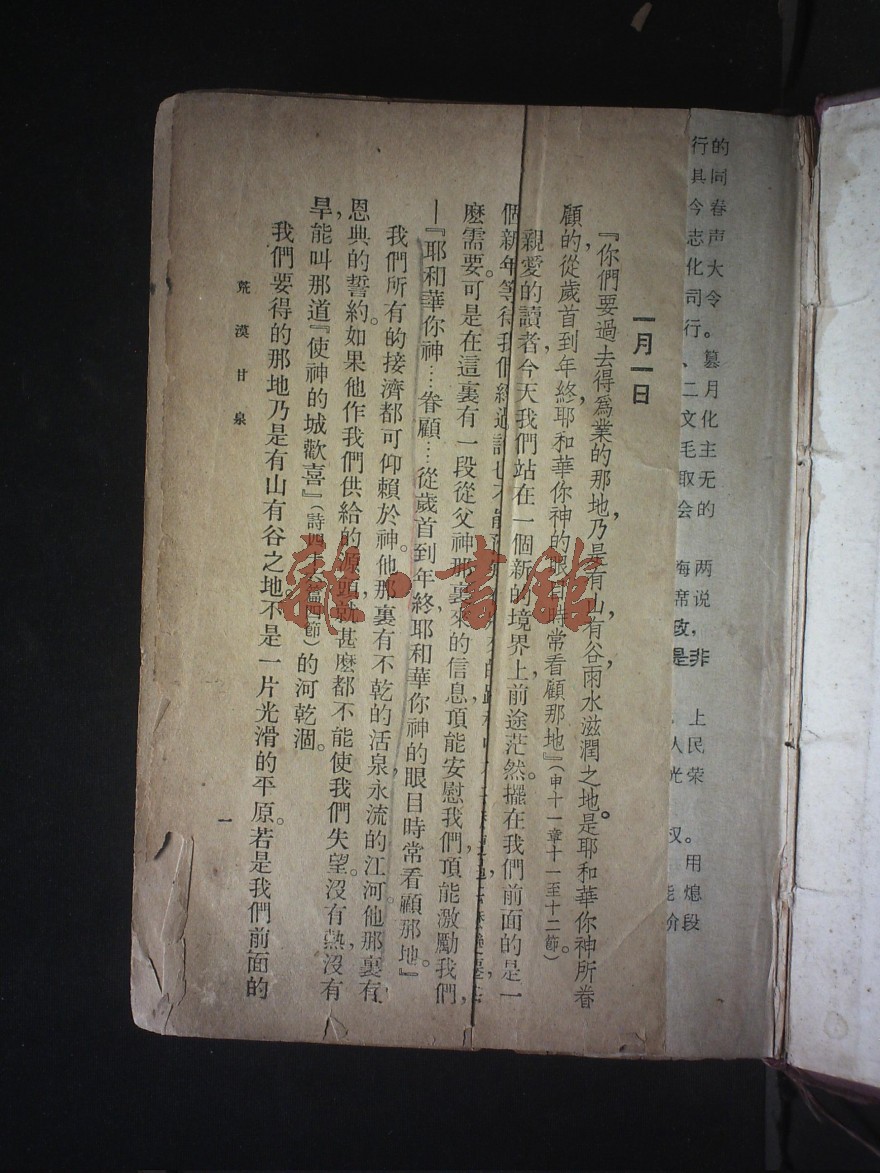 一月一日
『你們要過去得為業的那地，乃是有山，有谷，雨水滋潤之地。是耶和華你神所眷
顧的，從歲首到年終，耶和華你神的眼目時常看顧那地。』（申十一章十一至十二節）
親愛的讀者，今天我們站在一個新的境界上，前途茫然。擺在我們前面的是一
個新年，等待我們經過
麽需要。可是在這裏有一段從父神那裏來的信息，頂能安慰我們，頂能激勵我們，
—『耶和華你神…眷顧…從歲首到年終，耶和華你神的眼目時常看顧那地。』
我們所有的接濟都可仰賴於神。他那裏有不乾的活泉，永流的江河。他那裏有
恩典的誓約。如果他作我們供給的源頭，就甚麽都不能使我們失望。沒有熱，沒有
旱，能叫那道『使神的城歡喜』（詩四篇四節）的河乾涸。
我們要得的那地乃是有山有谷之地。不是一片光滑的平原。若是我們前面的
荒漠甘泉
一
雜·書館
的同春声大令。
行具今志化司行
墓月化主无的
、二文毛取会
两说
海席
是非
上民荣
人光
权。
用熄段